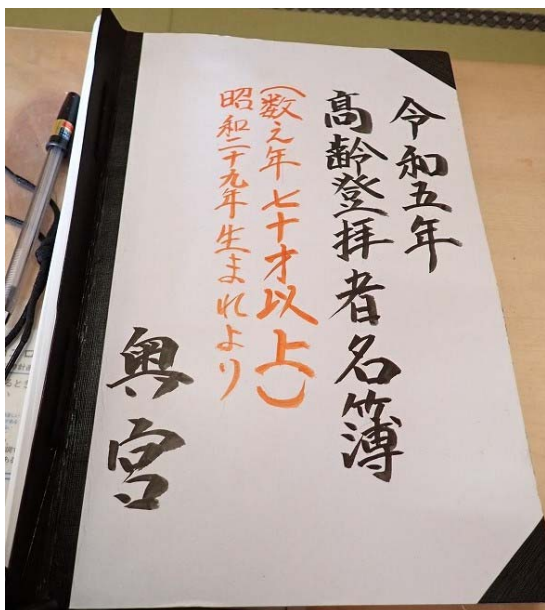 令和五年
高齢登拝者名簿
(数え年七十才以上)
昭和二十九年生まれより
奥宮